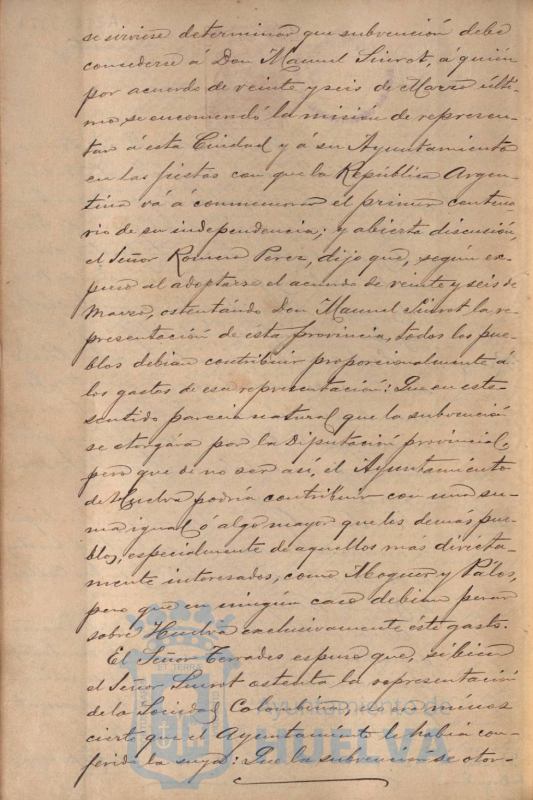 se sirviese determinar que subvención debe
concederse á Don Manuel Siurot, á quien
por acuerdo de veinte y seis de Marzo últi-
mo se encomendó la misión de represen-
tar á esta Ciudad y á su Ayuntamiento
en las fiestas con que la República Argen-
tina vá á conmemorar el primer centena-
rio de su independencia; y abierta discusión,
el Señor Romero Perez, dijo que, según ex-
puso al adoptarse el acuerdo de veinte y seis de
Marzo, ostentando Don Manuel Siurot la re-
presentación de esta provincia, todos los pue-
blos debian contribuir proporcionalmente á
los gastos de esa representación: Que en este
sentido parecia natural que la subvención
se otorgára por la Diputación provincial,
pero que de no ser así, el Ayuntamiento
de Huelva podría contribuir con una su-
ma igual ó algo mayor que los demás pue-
blos, especialmente de aquellos más directa-
mente interesados, como Moguer y Palos,
pero que en ningún caso debian pesar
sobre Huelva exclusivamente este gasto.
El Señor Terrades expuso que, si bien
el Señor Siurot ostenta la representación
de la Sociedad Colombina, no es menos
cierto que el Ayuntamiento le habia con-
ferido la suya: Que la subvención se otor-
Ayuntamiento de
HUELVA